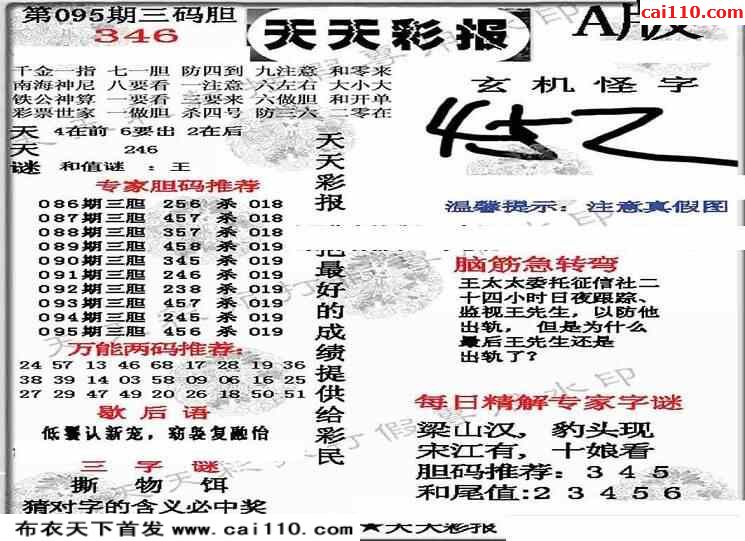 第095期三码胆
346
天天彩报
A版
cai110.com
千金一指 七一胆 防四到 九注意 和零来
南海神尼 八要看 一注意 六左右 大小大
铁公神算 一要看 三要来 六做胆 和开单
彩票世家 一做胆 杀四号 防三六 二零在
天 4在前 6要出 2在后
天 246
谜 和值谜 : 王
专家胆码推荐
086期三胆 256 杀 018
087期三胆 457 杀 018
088期三胆 357 杀 018
089期三胆 458 杀 019
090期三胆 345 杀 019
091期三胆 246 杀 019
092期三胆 238 杀 019
093期三胆 457 杀 019
094期三胆 245 杀 019
095期三胆 456 杀 019
万能两码推荐:
24 57 13 46 68 17 28 19 36
38 39 14 03 58 09 06 16 25
27 29 47 49 20 26 18 50 51
歇后语
低鬟认新宠,窈窕复融怡
三字谜
撕 物 饵
猜对字的含义必中奖
天天彩报
把最好的成绩提供给彩民
玄机怪字
温馨提示: 注意真假图
脑筋急转弯
王太太委托征信社二
十四小时日夜跟踪、
监视王先生,以防他
出轨, 但是为什么
最后王先生还是
出轨了?
每日精解专家字谜
梁山汉,豹头现
宋江有,十娘看
胆码推荐: 3 4 5
和尾值:2 3 4 5 6
布衣天下首发 www.cai110.com
★天天彩报